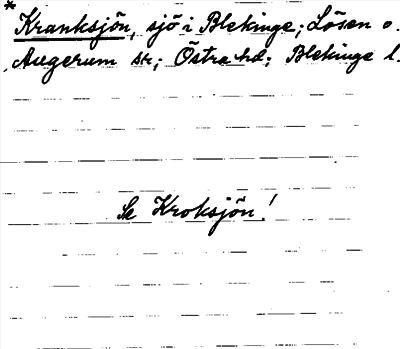 *
Kranksjön, sjö i Blekinge; Lösen o.
Augerum sn; Östra hd; Blekinge l.
Se Kroksjön!